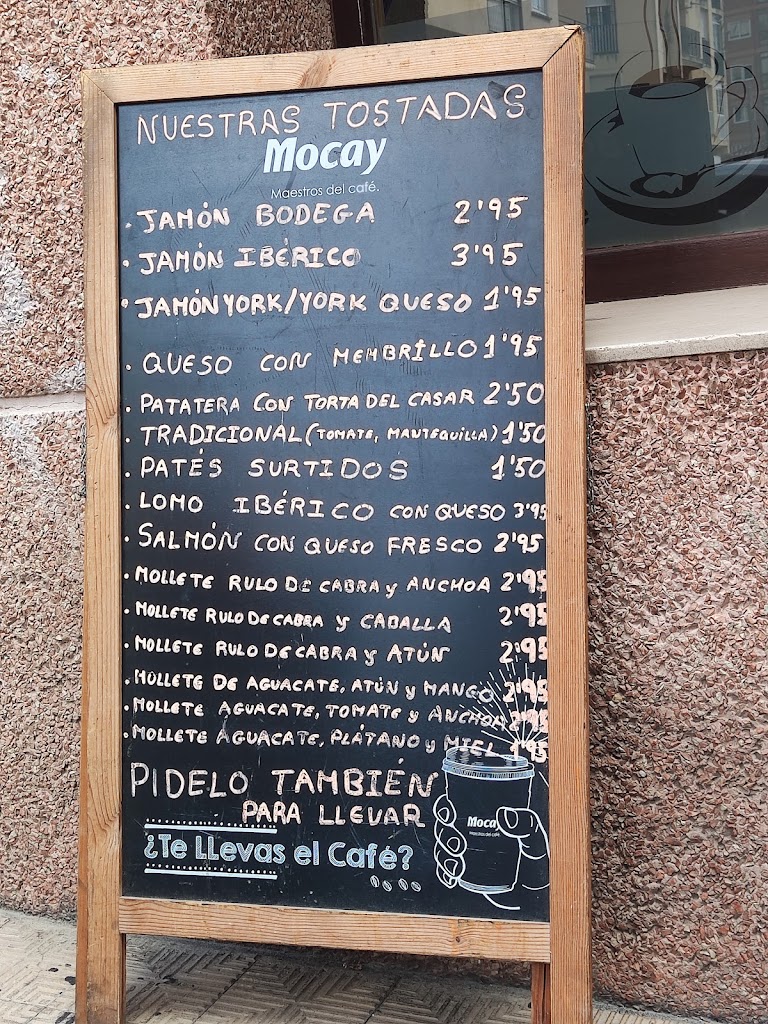 NUESTRAS TOSTADAS
Mocay
Maestros del café.
. JAMÓN BODEGA 2'95
. JAMÓN IBÉRICO 3'95
. JAMÓN YORK/YORK QUESO 1'95
. QUESO CON MEMBRILLO 1'95
. PATATERA CON TORTA DEL CASAR 2'50
. TRADICIONAL (TOMATE, MANTEQUILLA) 1'50
. PATÉS SURTIDOS 1'50
. LOMO IBÉRICO CON QUESO 3'95
. SALMÓN CON QUESO FRESCO 2'95
. MOLLETE RULO DE CABRA y ANCHOA 2'95
. MOLLETE RULO DE CABRA y CABALLA 2'95
. MOLLETE RULO DE CABRA y ATÚN 2'95
. MOLLETE DE AGUACATE, ATÚN y MANGO 2'95
. MOLLETE AGUACATE, TOMATE y ANCHOA 2'95
. MOLLETE AGUACATE, PLÁTANO y MIEL 1'95
PIDELO TAMBIÉN
PARA LLEVAR
¿Te LLevas el Café?
Mocay
Maestros del café.